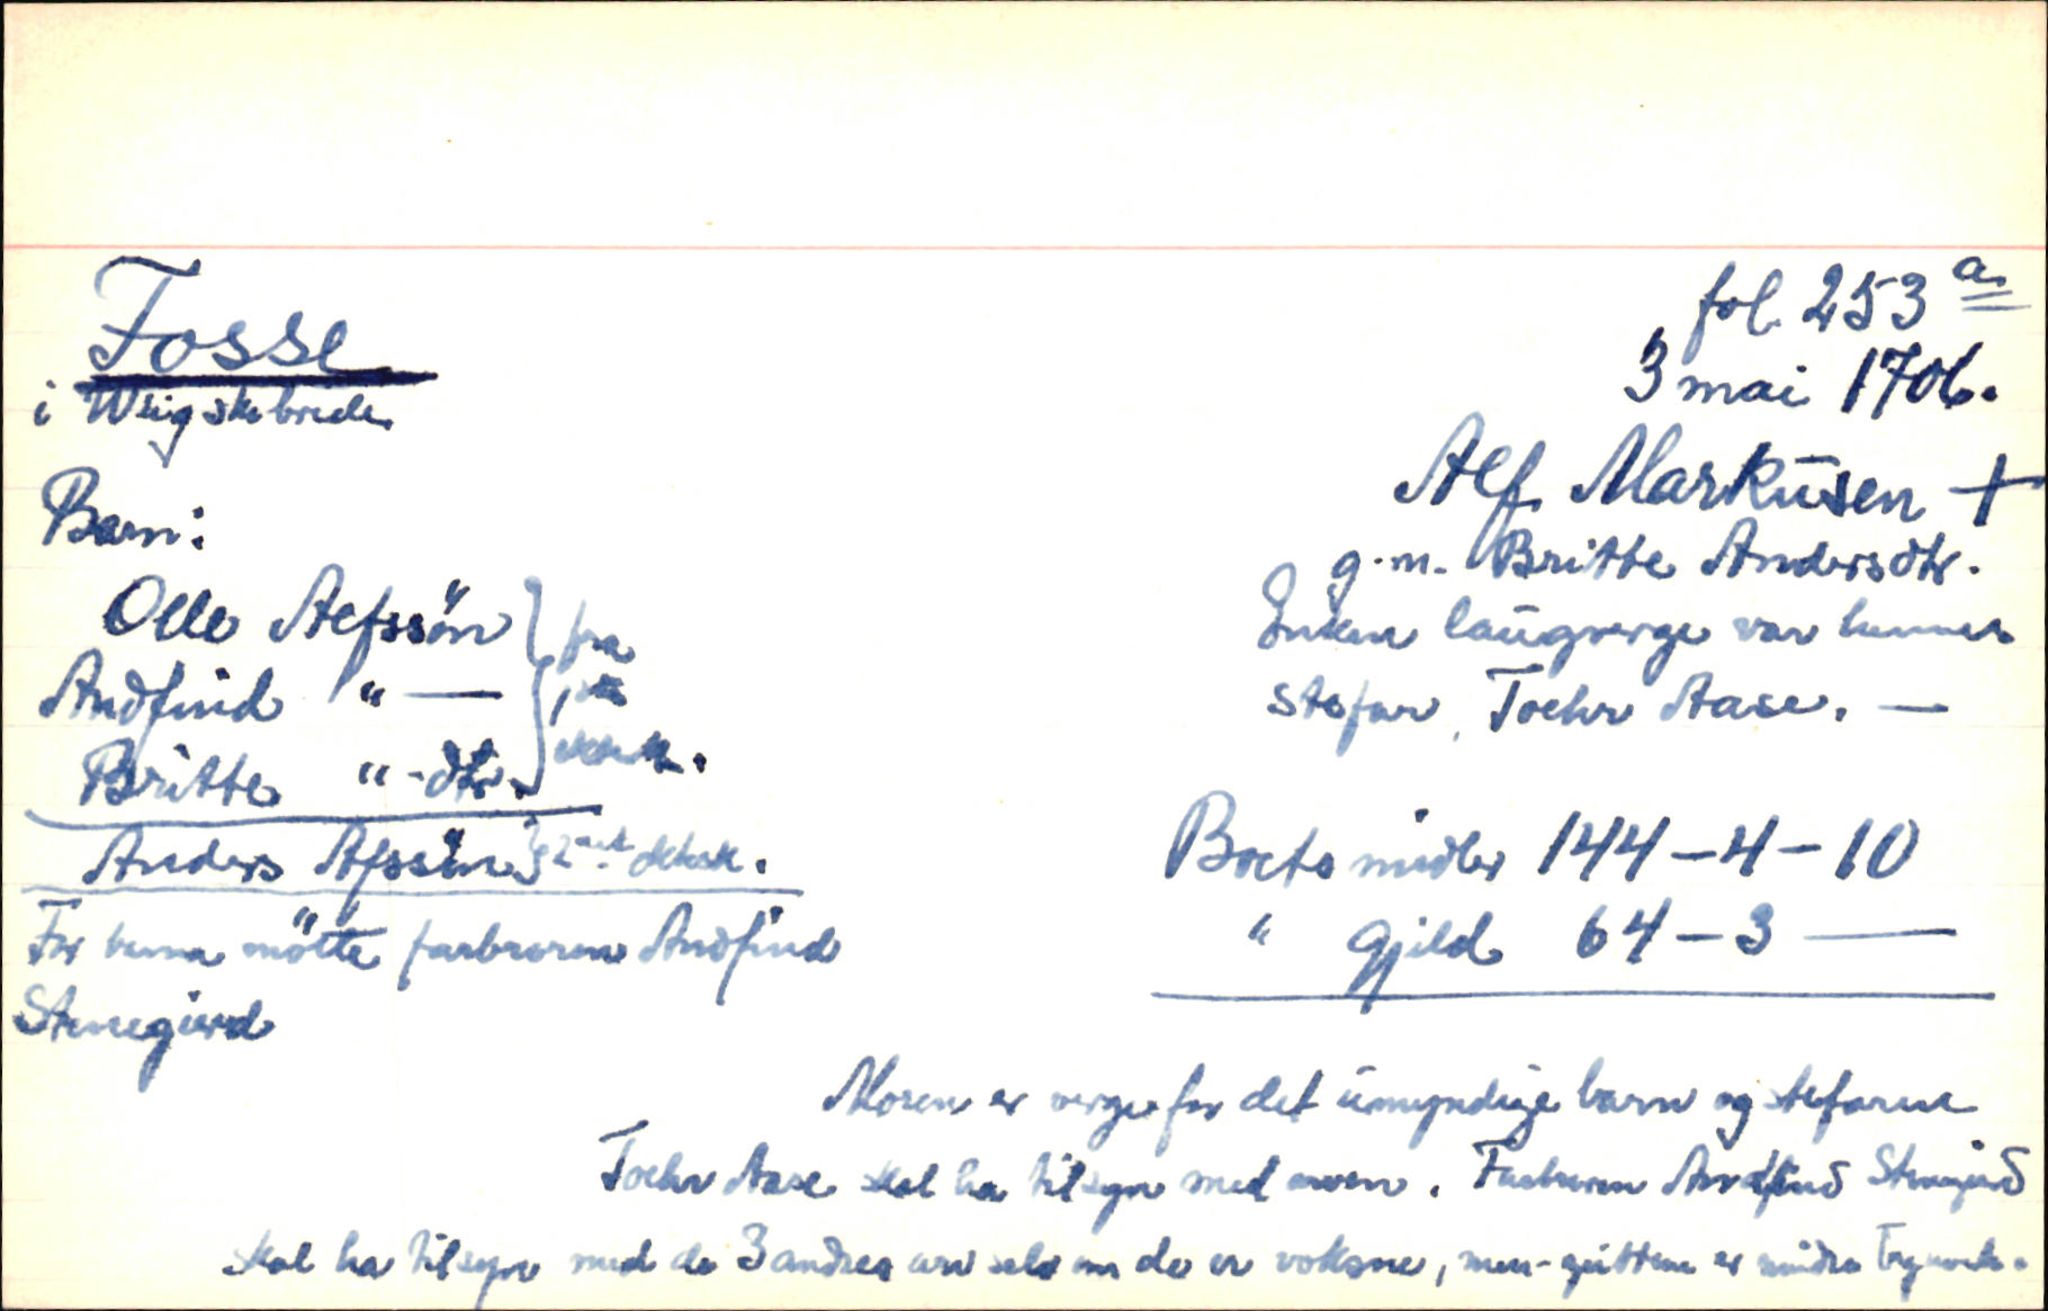 Fosse
i Wiigskebrede
fol. 253 a.
3 mai 1706.
Alf Markusen +
g.m. Britte Andersdtr.
Enken laugverge var hennes
stefar, Toehr Aase. —
Barn:
Olle Alfssön } fra
Andfind " — } 1ste
Britte " -dtr. } ektesk.
Anders Afssön } 2net ektesk.
For barna mötte farbroren Andfind
Stenegierd
Boets midler 144 – 4 – 10
" Gjild 64 – 3 —
Moren er verge for det umyndige barn og stefaren
Toehr Aase skal ha tilsyn med arven. Farbroren Andfind Stenegierd
skal ha tilsyn med de 3 andres arv selv om de er voksne, men guttene er mindre